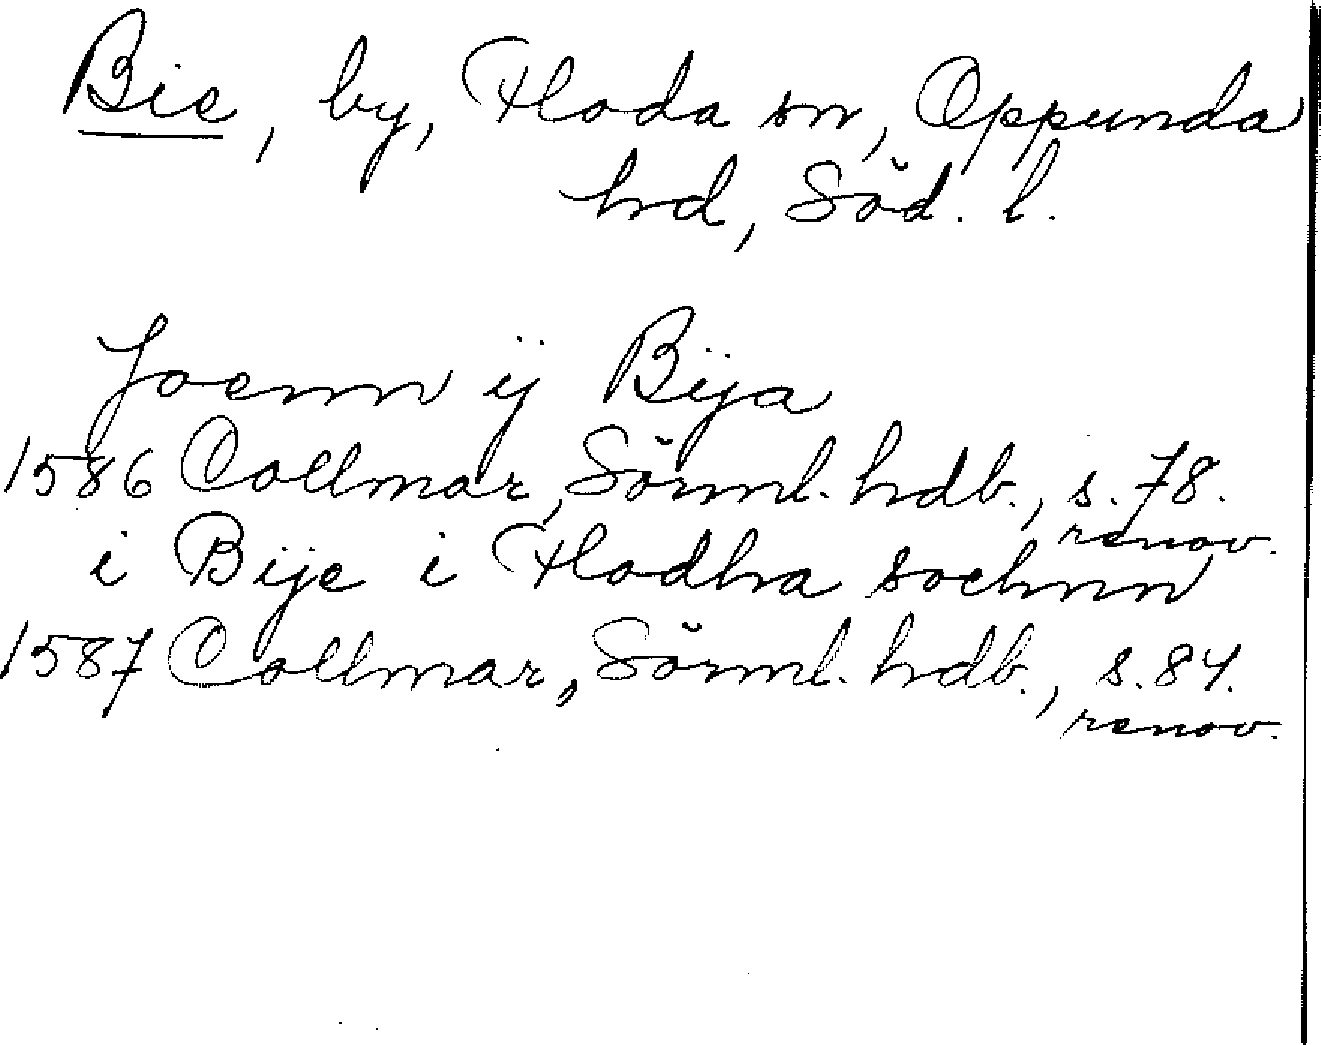 Bie, by, Floda sn, Oppunda
hd, Söd. l.
Joenn ij Bija
1586 Collmar, Sörml. hdb., s. 78.
renov.
i Bije i Flodha sochnn
1587 Collmar, Sörml. hdb., s. 84.
renov.